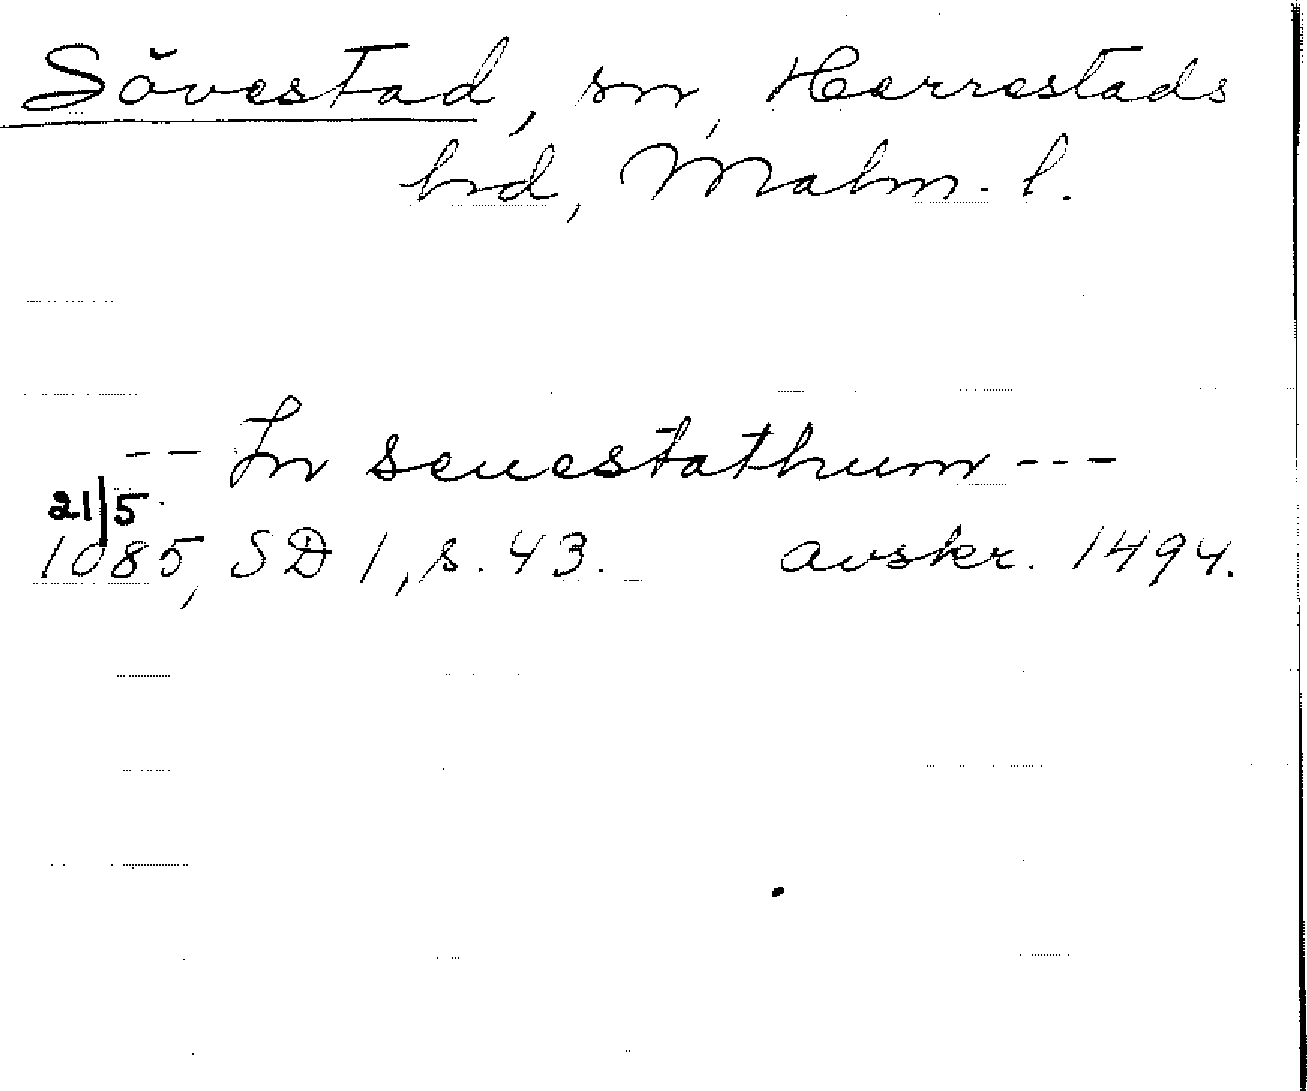 Sövestad, sn, Herrestads
hrd, Malm. l.
-- In seuestathum ---
21/5
1085, SD 1, s. 43. avskr. 1494.